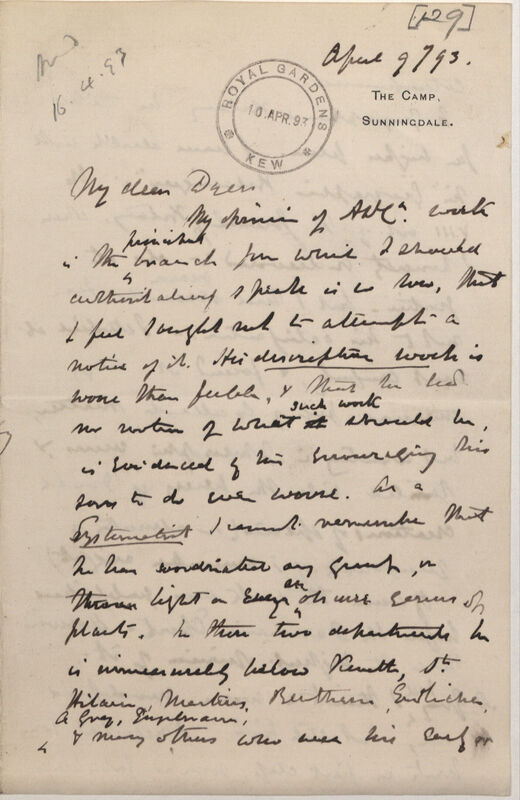 [129]
16.4.93
April 9/93.
THE CAMP,
SUNNINGDALE.
ROYAL GARDENS
10.APR.93
KEW
My dear Dyer
My opinion of ADC's work
in the principal branch for which I should
authoritatively speak is so low, that
I feel I ought not to attempt a
notice of it. His descriptive work is
worse than feeble, & that he had
no notion of what it such work should be,
is evidenced by his encouraging his
sons to do even worse. As a
Systematist I cannot remember that
he has coordinated any group, or
thrown light on any obscure genus of
plants. In these two departments he
is immeasurably below Kunth, St.
Hilaire, Martius, Bentham, Endlicher,
A Gray, Engelmann,
& many others who were his